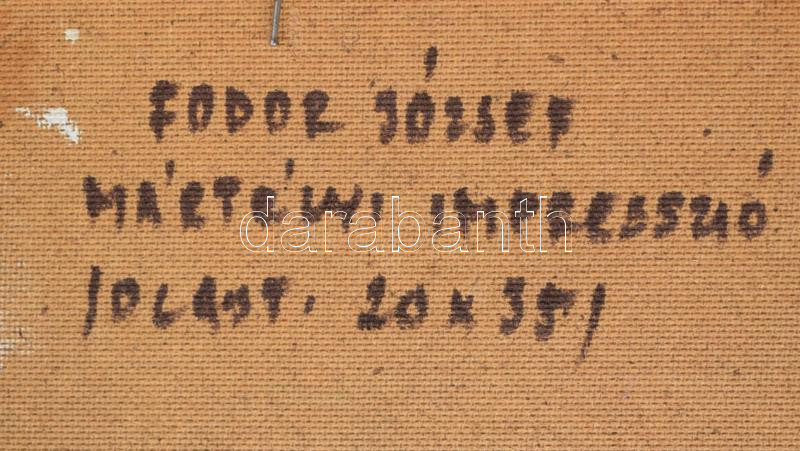 FODOR JÓZSEF
MÁRTÉLYI IMPRESSZIÓ
darabanth
/OLAJ T. 20 x 35/